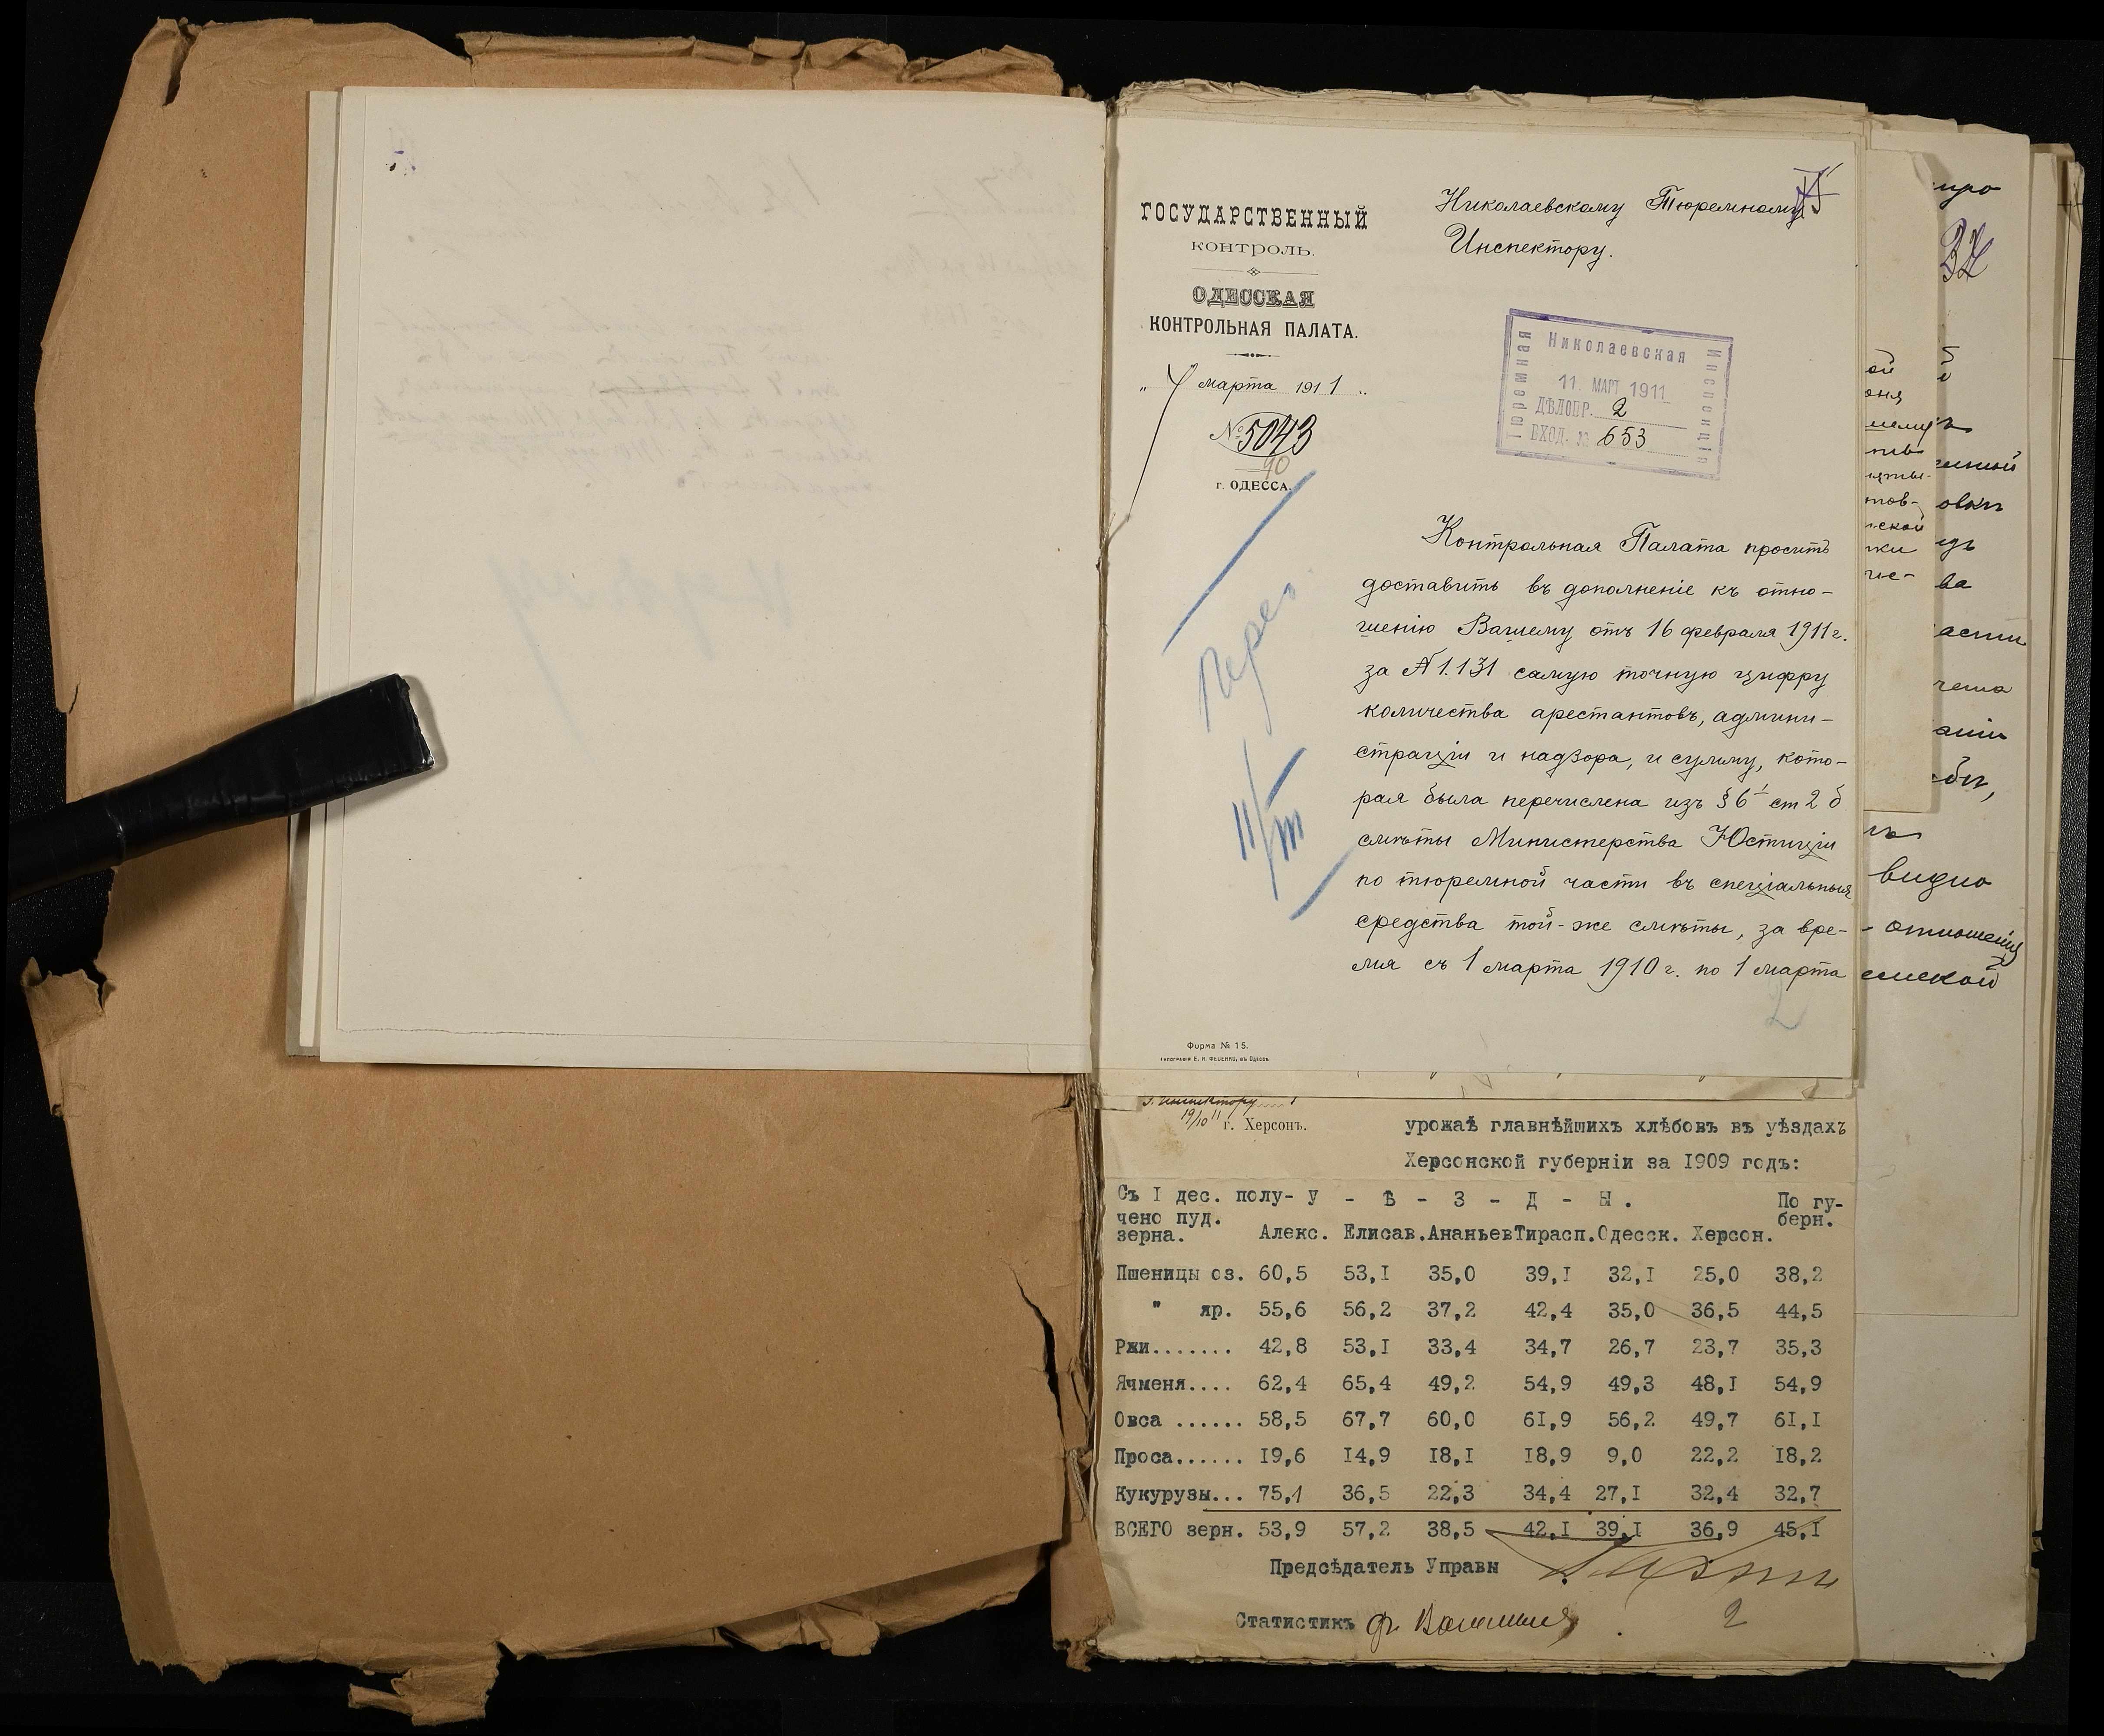 ГОСУДАРСТВЕННЫЙ
КОНТРОЛЬ.
ОДЕССКАЯ
КОНТРОЛЬНАЯ ПАЛАТА.
" 7 марта 1911 "
№ 5043
90
г. ОДЕССА.
Николаевскому Тюремному
Инспектору.
Николаевская
Тюремная
Инспекція
11. МАРТ 1911
ДѢЛОПР. 2
ВХОД. № 653
Контрольная Палата проситъ
доставить въ дополненіе къ отно-
шенію Вашему отъ 16 февраля 1911 г.
за № 1.131 самую точную цифру
количества арестантовъ, админи-
страціи и надзора, и сумму, кото-
рая была перечислена изъ § 6 ст 2 б
смѣты Министерства Юстиціи
по тюремной части въ спеціальныя
средства той-же смѣты, за вре-
мя съ 1 марта 1910 г. по 1 марта
2
11/III
Фирма № 15.
37
видно
- отношенія
г. Инспектору
19/10 11 г. Херсонъ.
урожаѣ главнѣйшихъ хлѣбовъ въ уѣздахъ
Херсонской губерніи за 1909 годъ:
Съ I дес. полу- У - Ѣ - З - Д - Ы . По гу-
чено пуд. берн.
зерна. Алекс. Елисав. Ананьев Тирасп. Одесск. Херсон.
Пшеницы оз. 60,5 53,I 35,0 39,I 32,I 25,0 38,2
" яр. 55,6 56,2 37,2 42,4 35,0 36,5 44,5
Ржи....... 42,8 53,I 33,4 34,7 26,7 23,7 35,3
Ячменя.... 62,4 65,4 49,2 54,9 49,3 48,I 54,9
Овса ...... 58,5 67,7 60,0 6I,9 56,2 49,7 6I,I
Проса...... I9,6 I4,9 I8,I I8,9 9,0 22,2 I8,2
Кукурузы... 75,1 36,5 22,3 34,4 27,I 32,4 32,7
ВСЕГО зерн. 53,9 57,2 38,5 42,I 39,I 36,9 45,I
Предсѣдатель Управы
Статистикъ
2